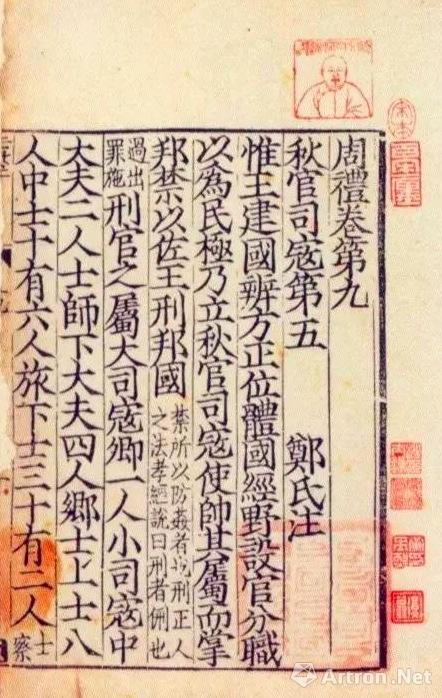 周禮卷第九
秋官司寇第五 鄭氏注
惟王建國辨方正位體國經野設官分職
以為民極乃立秋官司寇使帥其屬而掌
邦禁以佐王刑邦國 禁所以防姦者也刑正人
之法孝經說曰刑者侀也
過出
罪施 刑官之屬大司寇卿一人小司寇中
大夫二人士師下大夫四人鄉士上士八
人中士十有六人旅下士三十有二人 士
察
宋本
Artron.Net